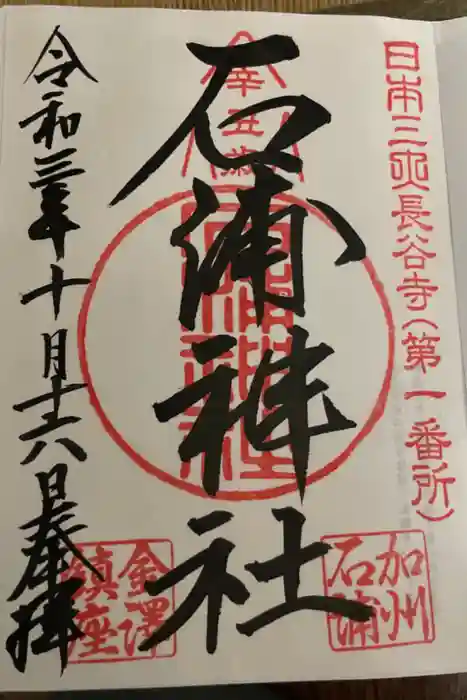 日本三大長谷寺(第一番所)
辛丑歳
石浦神社
石浦神社
加州石浦
金澤鎮座
令和三年十月十六日奉拝